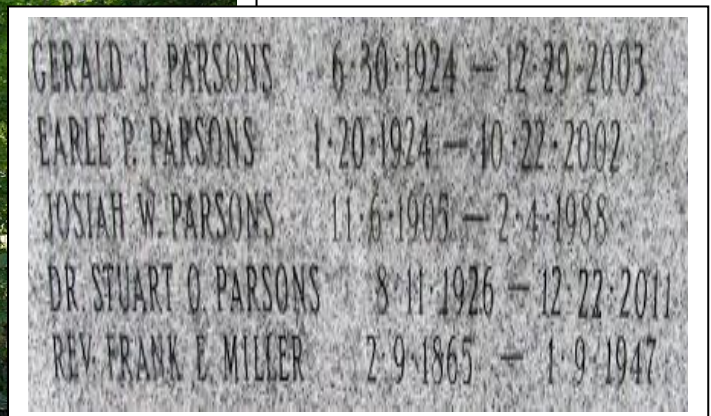 GERALD J. PARSONS 6·30·1924 — 12·29·2003
EARLE P. PARSONS 1·20·1924 — 10·22·2002
JOSIAH W. PARSONS 11·6·1905 — 2·4·1988
DR. STUART O. PARSONS 8·11·1926 — 12·22·2011
REV. FRANK E. MILLER 2·9·1865 — 1·9·1947